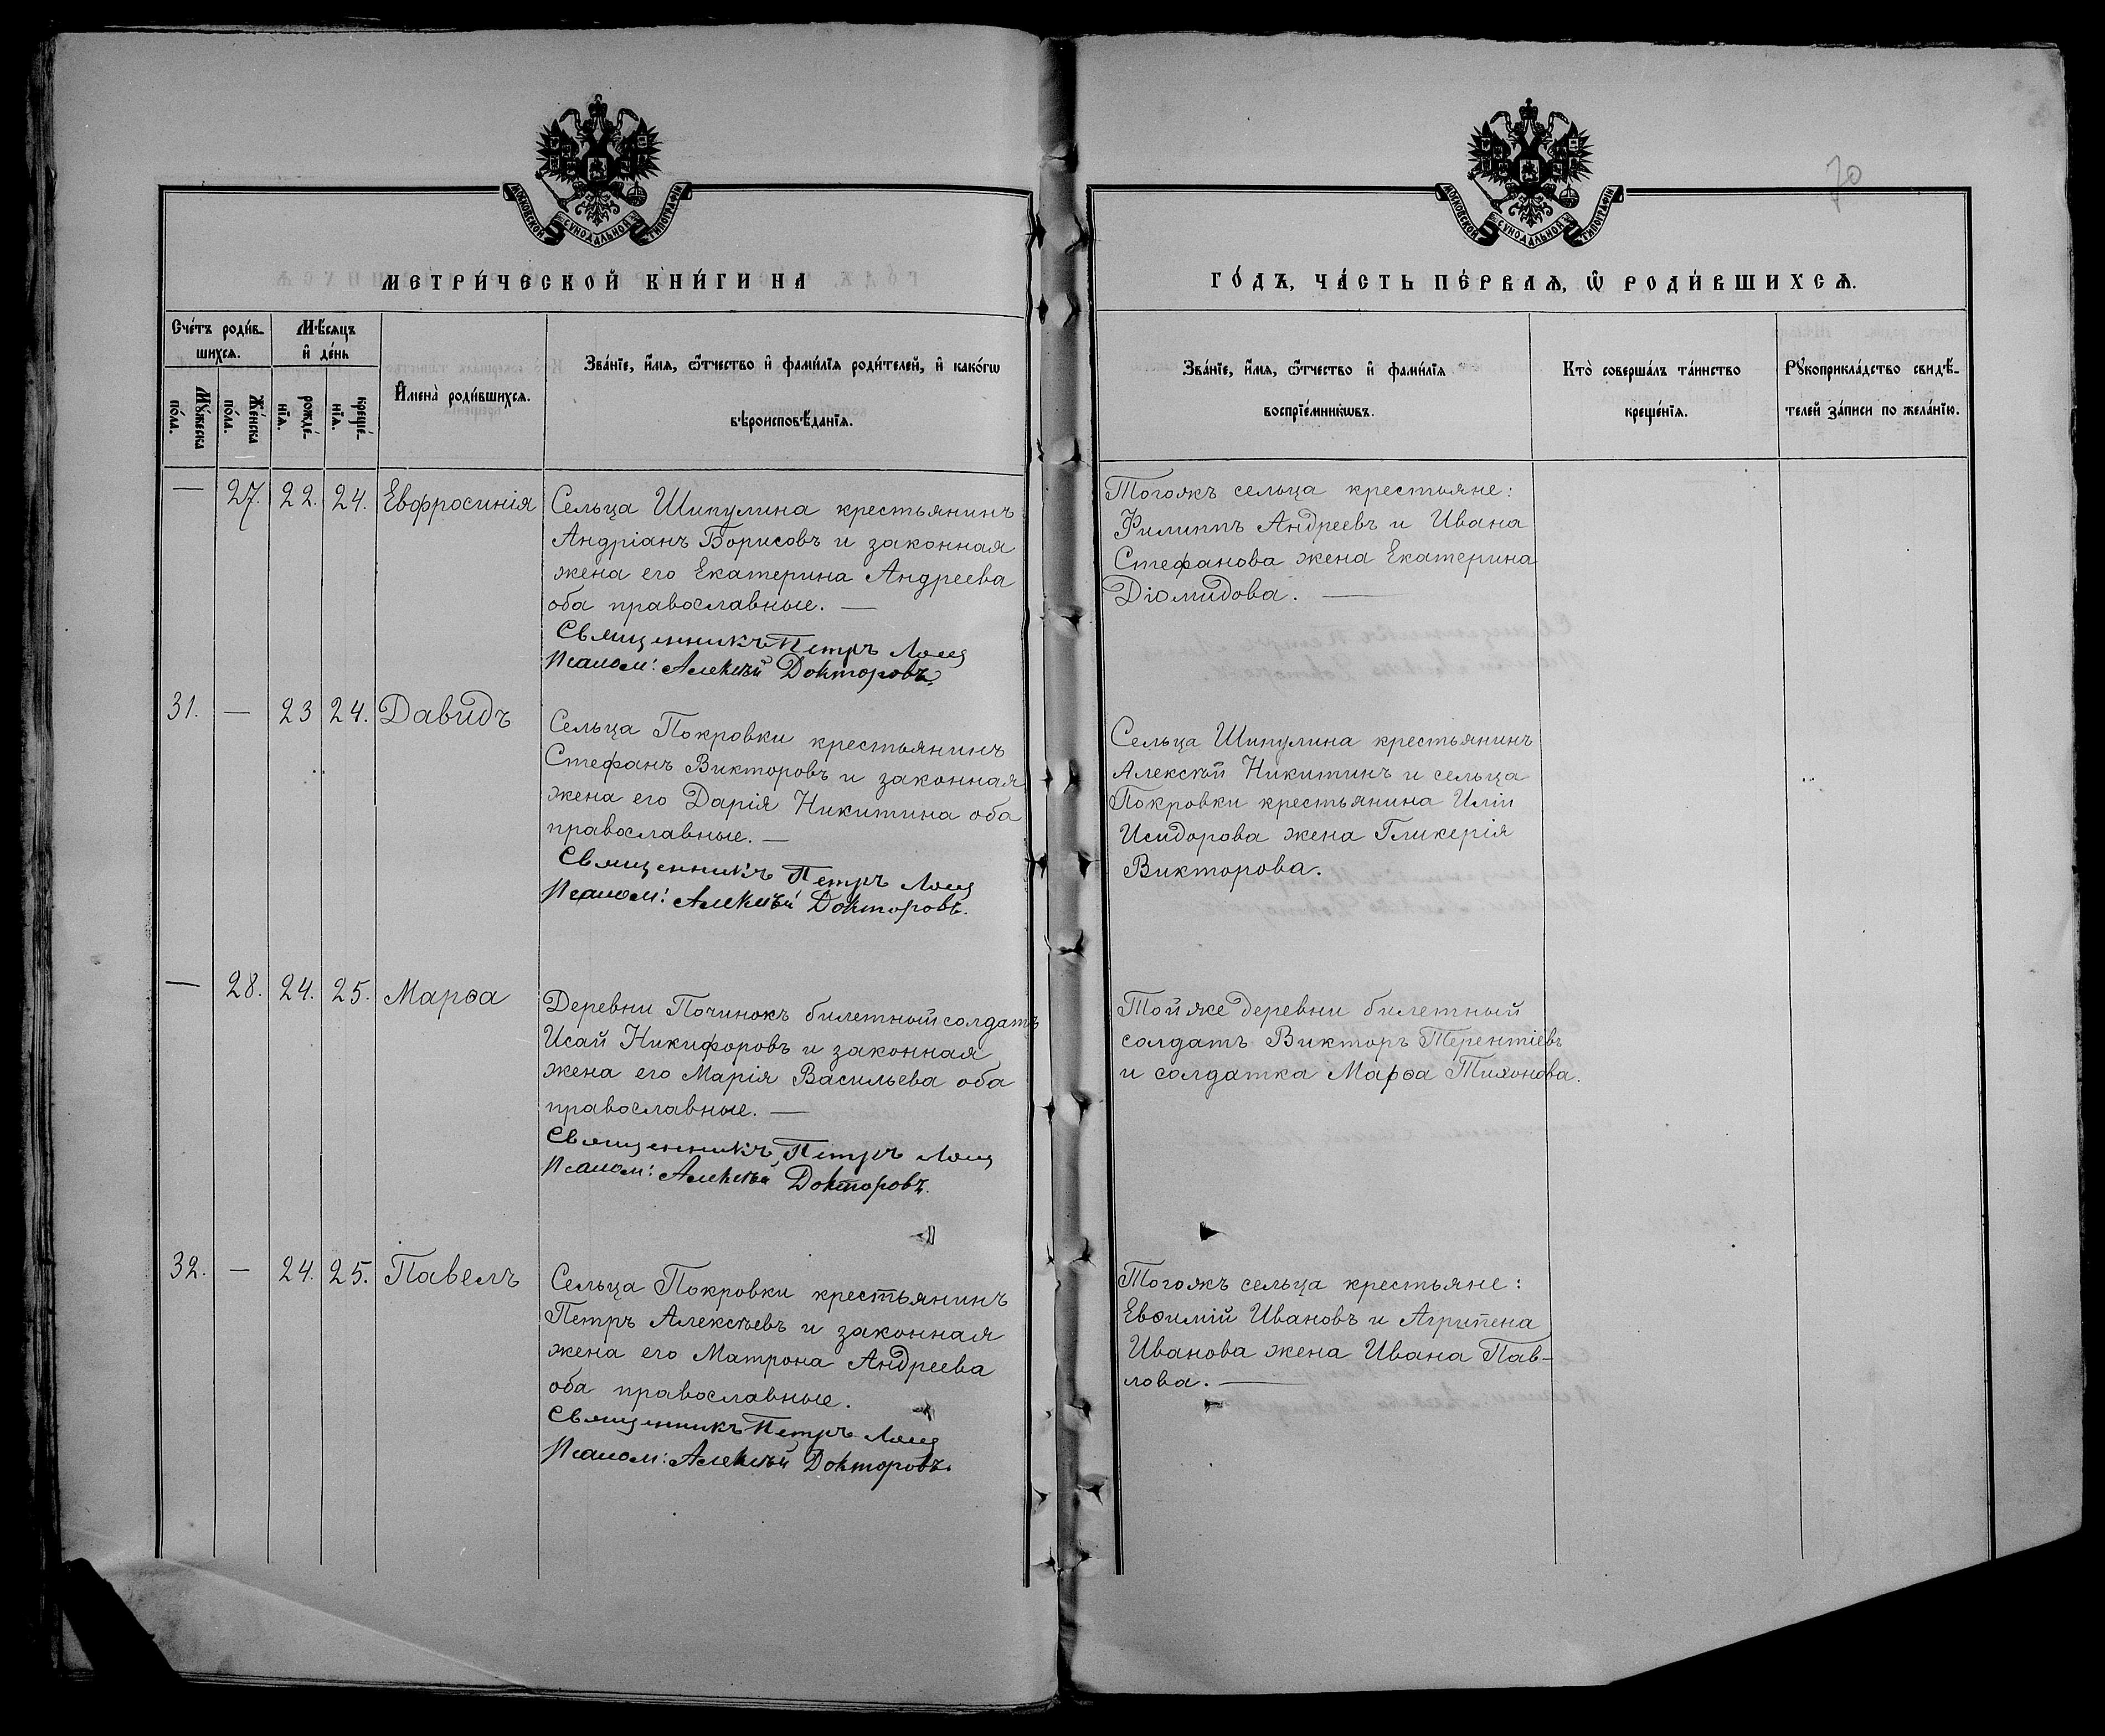 МОСКОВСКОЙ СѴНОДАЛЬНОЙ ТИПОГРАФІИ
МЕТРИ́ЧЕСКОЙ КНИ́ГИ НА
Сче́тъ роди́в-
шихся.
Мѣ́сяцъ
и҆ де́нь
Мꙋ́жеска
по́ла.
Же́нска
по́ла.
рожде́-
нїя.
креще́-
нїя.
И҆мена̀ роди́вшихся.
Зва́нїе, и҆́мя, ѻ҆́тчество и҆ фами́лїя роди́телей, и҆ како́гѡ
вѣроисповѣ́данїя.
— 27. 22. 24. Евфросинія
Сельца Шипулина крестьянинъ
Андріанъ Борисовъ и законная
жена его Екатерина Андреева
оба православные. —
Священникъ Петръ
Псалом: Алексѣй Докторовъ.
31. — 23 24. Давидъ
Сельца Покровки крестьянинъ
Стефанъ Викторовъ и законная
жена его Дарія Никитина оба
православные. —
Священникъ Петръ
Псалом: Алексѣй Докторовъ.
— 28. 24. 25. Марѳа
Деревни Починокъ билетный солдатъ
Исай Никифоровъ и законная
жена его Марія Васильева оба
православные. —
Священникъ Петръ
Псалом: Алексѣй Докторовъ.
32. — 24. 25. Павелъ
Сельца Покровки крестьянинъ
Петръ Алексѣевъ и законная
жена его Матрона Андреева
оба православные.
Священникъ Петръ
Псалом: Алексѣй Докторовъ.
70
МОСКОВСКОЙ СѴНОДАЛЬНОЙ ТИПОГРАФІИ
ГО́ДЪ, ЧА́СТЬ ПЕ́РВАѦ, Ѽ РОДИ́ВШИХСѦ.
Зва́нїе, и҆́мя, ѻ҆́тчество и҆ фами́лїя
воспрїе́мникѡвъ.
Кто̀ соверша́лъ та́инство
креще́нїя.
Рꙋкоприкла́дство свидѣ́-
телей за́писи по жела́нїю.
Тогожъ сельца крестьяне:
Филиппъ Андреевъ и Ивана
Стефанова жена Екатерина
Діомидова. —
Сельца Шипулина крестьянинъ
Алексѣй Никитинъ и сельца
Покровки крестьянина Иліи
Исидорова жена Гликерія
Викторова.
Той же деревни билетный
солдатъ Викторъ Терентіевъ
и солдатка Марѳа Тихонова.
Тогожъ сельца крестьяне:
Евѳимій Ивановъ и Агрипена
Иванова жена Ивана Пав-
лова. —